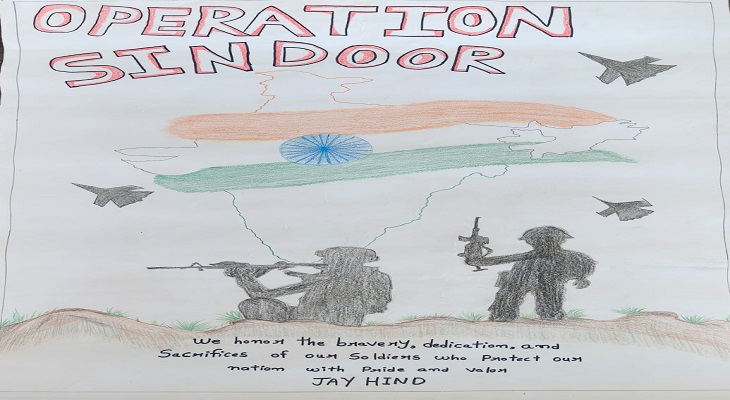 OPERATION
SINDOOR
We honor the bravery, dedication, and
Sacrifices of our Soldiers who Protect our
nation with Pride and valor
JAY HIND